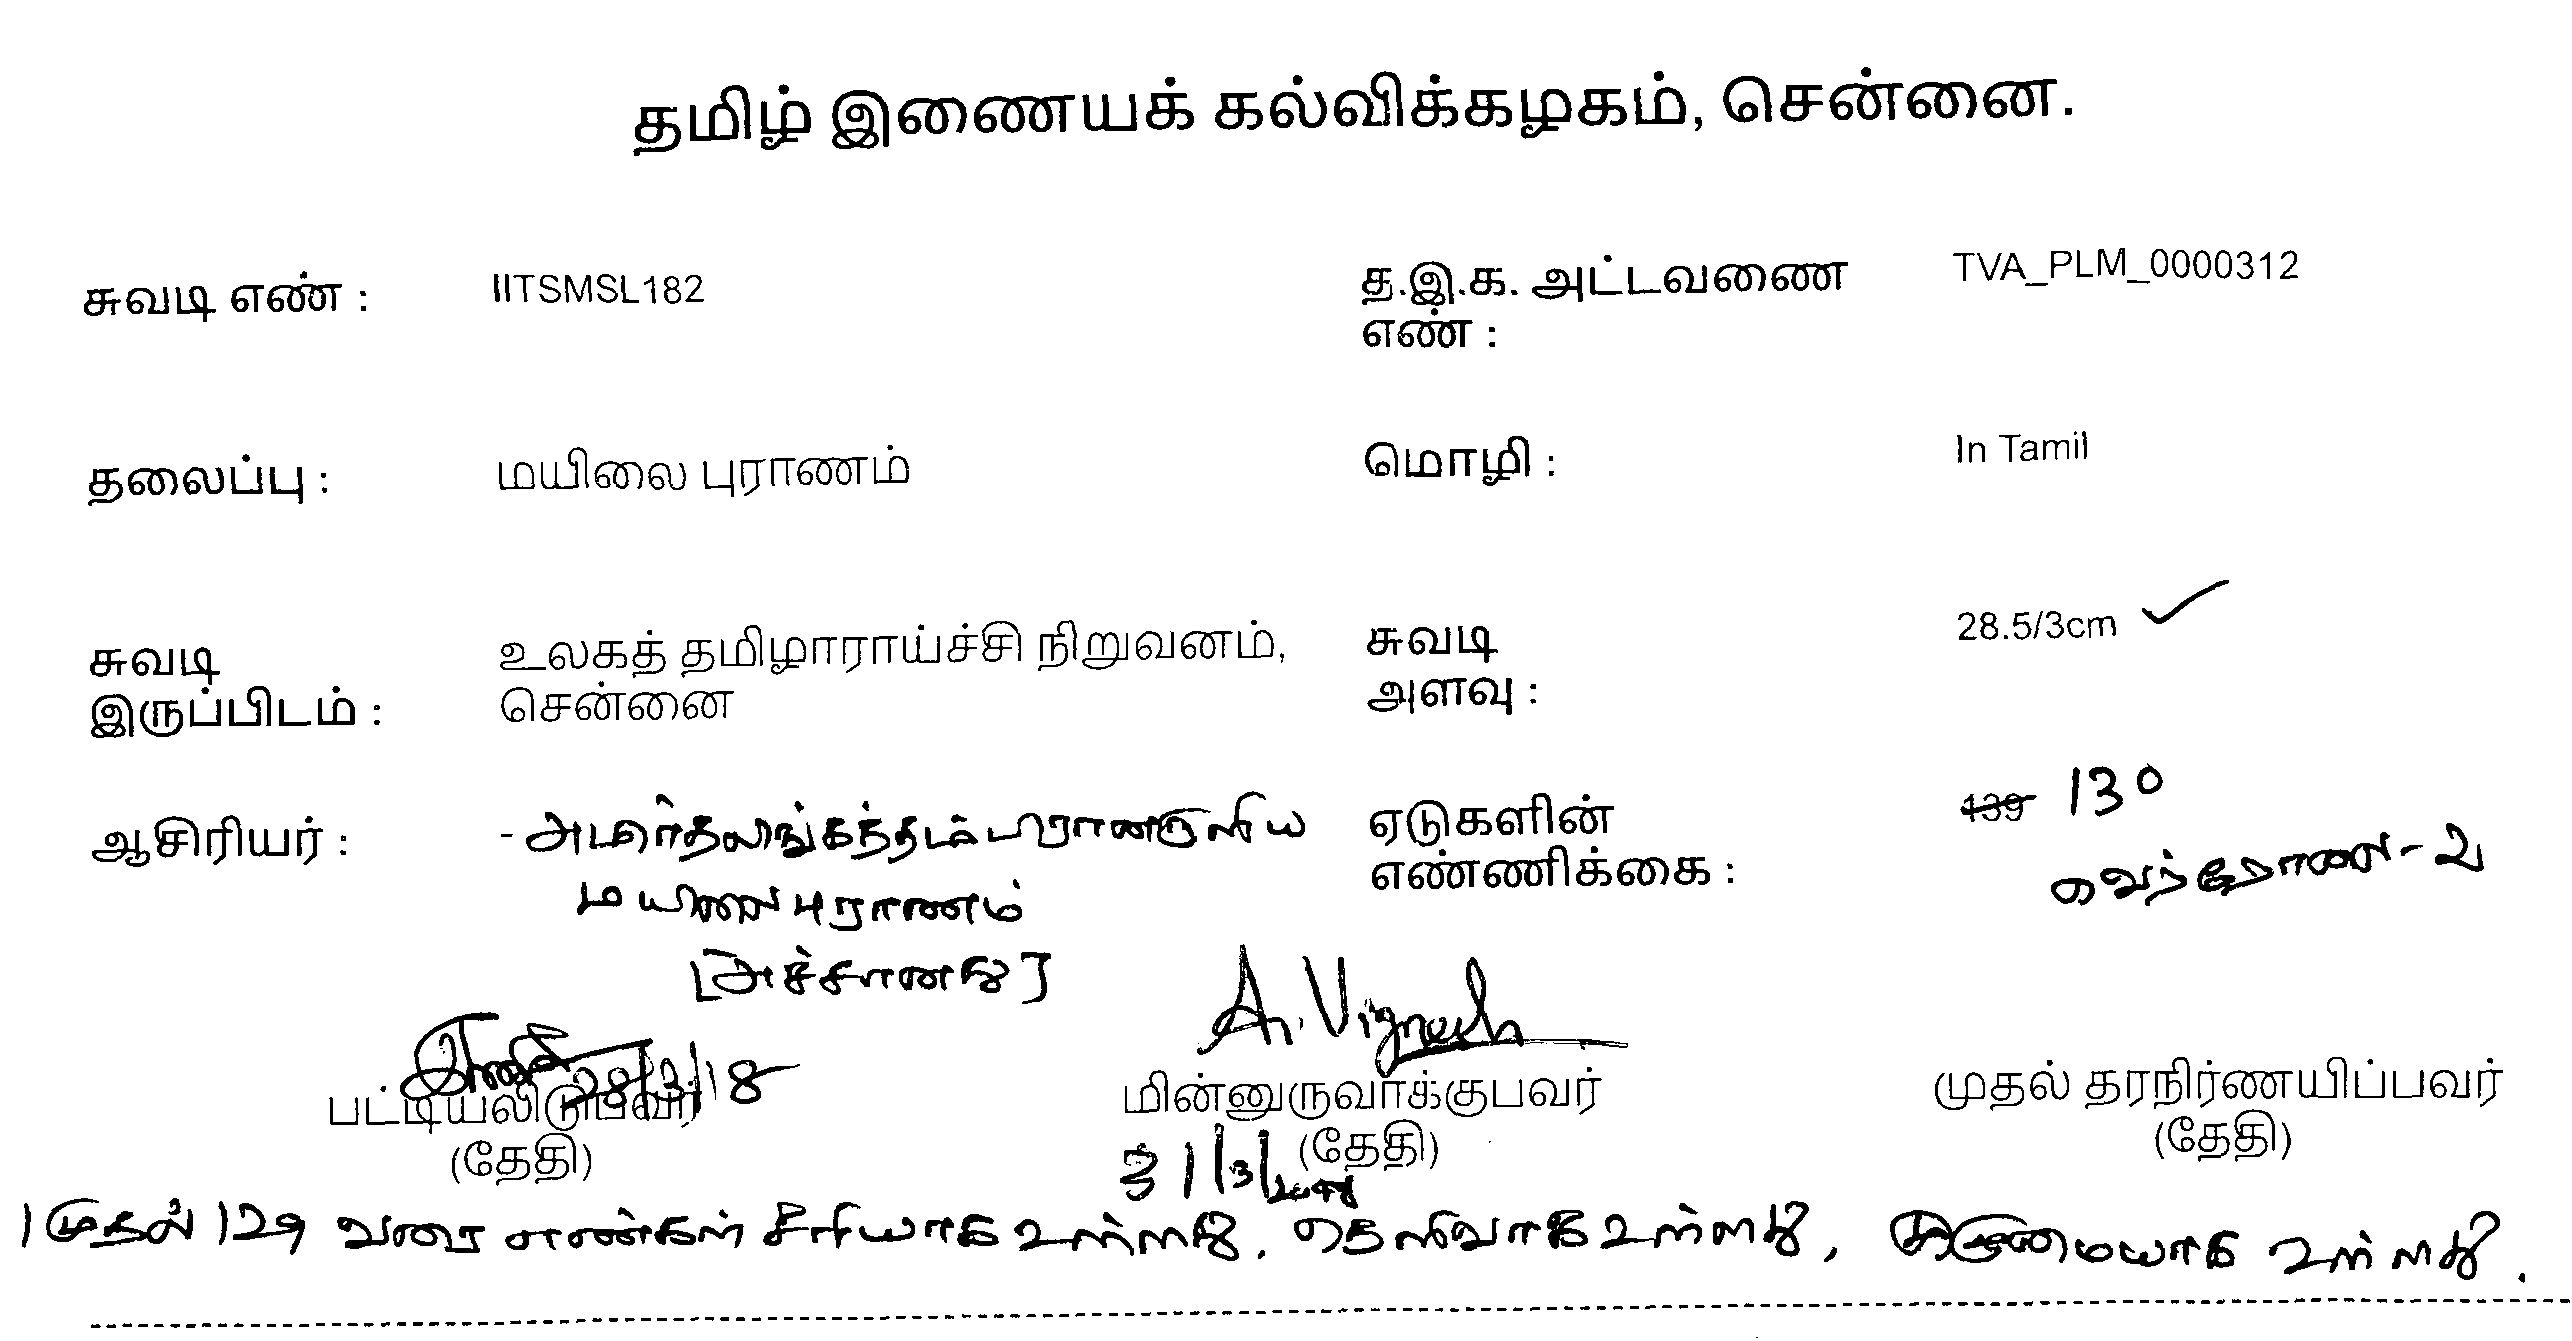 தமிழ் இணையக் கல்விக்கழகம், சென்னை.
சுவடி எண் : IITSMSL182 த.இ.க. அட்டவணை எண் : TVA_PLM_0000312
தலைப்பு : மயிலை புராணம் மொழி : In Tamil
சுவடி இருப்பிடம் : உலகத் தமிழாராய்ச்சி நிறுவனம், சென்னை சுவடி அளவு : 28.5/3cm
ஆசிரியர் : - ஏடுகளின் எண்ணிக்கை : 139 130
மயிலை புராணம்
[அச்சானது]
A. Vignesh
28/3/18
பட்டியலிடுபவர் மின்னுருவாக்குபவர் முதல் தரநிர்ணயிப்பவர்
(தேதி) (தேதி) (தேதி)
31/3/2018
1 முதல் 129 வரை எண்கள் சரியாக உள்ளது. தெளிவாக உள்ளது, முழுமையாக உள்ளது.